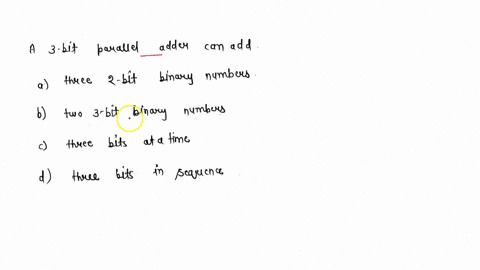 A 3-bit parallel adder can add.
a) three 2-bit binary numbers.
b) two 3-bit binary numbers
c) three bits at a time
d) three bits in sequence.